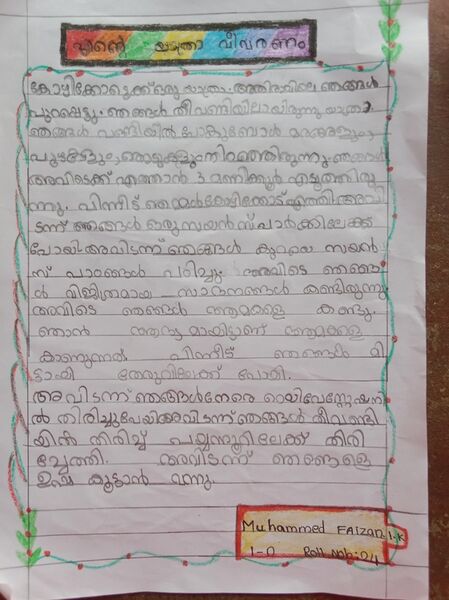 എന്റെ യാത്രാ വിവരണം
കോഴിക്കോട്ടേക്ക് ഒരു യാത്ര. അതിരാവിലെ ഞങ്ങൾ
പുറപ്പെട്ടു. ഞങ്ങൾ തീവണ്ടിയിലായിരുന്നു യാത്ര
ഞങ്ങൾ വണ്ടിയിൽ പോകുമ്പോൾ മരങ്ങളും
പുഴകളും നിറഞ്ഞിരുന്നു. ഞങ്ങൾ
അവിടേക്ക് എത്താൻ 3 മണിക്കൂർ എടുത്തിരു
ന്നു. പിന്നീട് ഞങ്ങൾ കോഴിക്കോട് എത്തി. അവി
ടന്ന് ഞങ്ങൾ ഒരു സയൻസ് പാർക്കിലേക്ക്
പോയി അവിടന്ന് ഞങ്ങൾ കുറെ സയൻ
സ് പാഠങ്ങൾ പഠിച്ചു. അവിടെ ഞങ്ങ
ൾ വിജിത്രമായ സാദനങ്ങൾ കണ്ടിരുന്നു
അവിടെ ഞങ്ങൾ ആമകളെ കണ്ടു.
ഞാൻ ആദ്യമായിട്ടാണ് ആമകളെ
കാണുന്നത്. പിന്നീട് ഞങ്ങൾ മി
ട്ടായി തെരുവിലേക്ക് പോയി.
അവിടന്ന് ഞങ്ങൾ നേരെ റെയിവേസ്റ്റേഷന
ൽ തിരിച്ചുപേയി അവിടന്ന് ഞങ്ങൾ തീവണ്ടി
യിൽ തിരിച്ച് പയ്യന്നൂറിലേക്ക് തിരി
ച്ചേത്തി. അവിടന്ന് ഞങ്ങളെ
ഉപ്പ കൂട്ടാൻ വന്നു.
Muhammed FAIZAN.I.K
1-D Roll No: 24